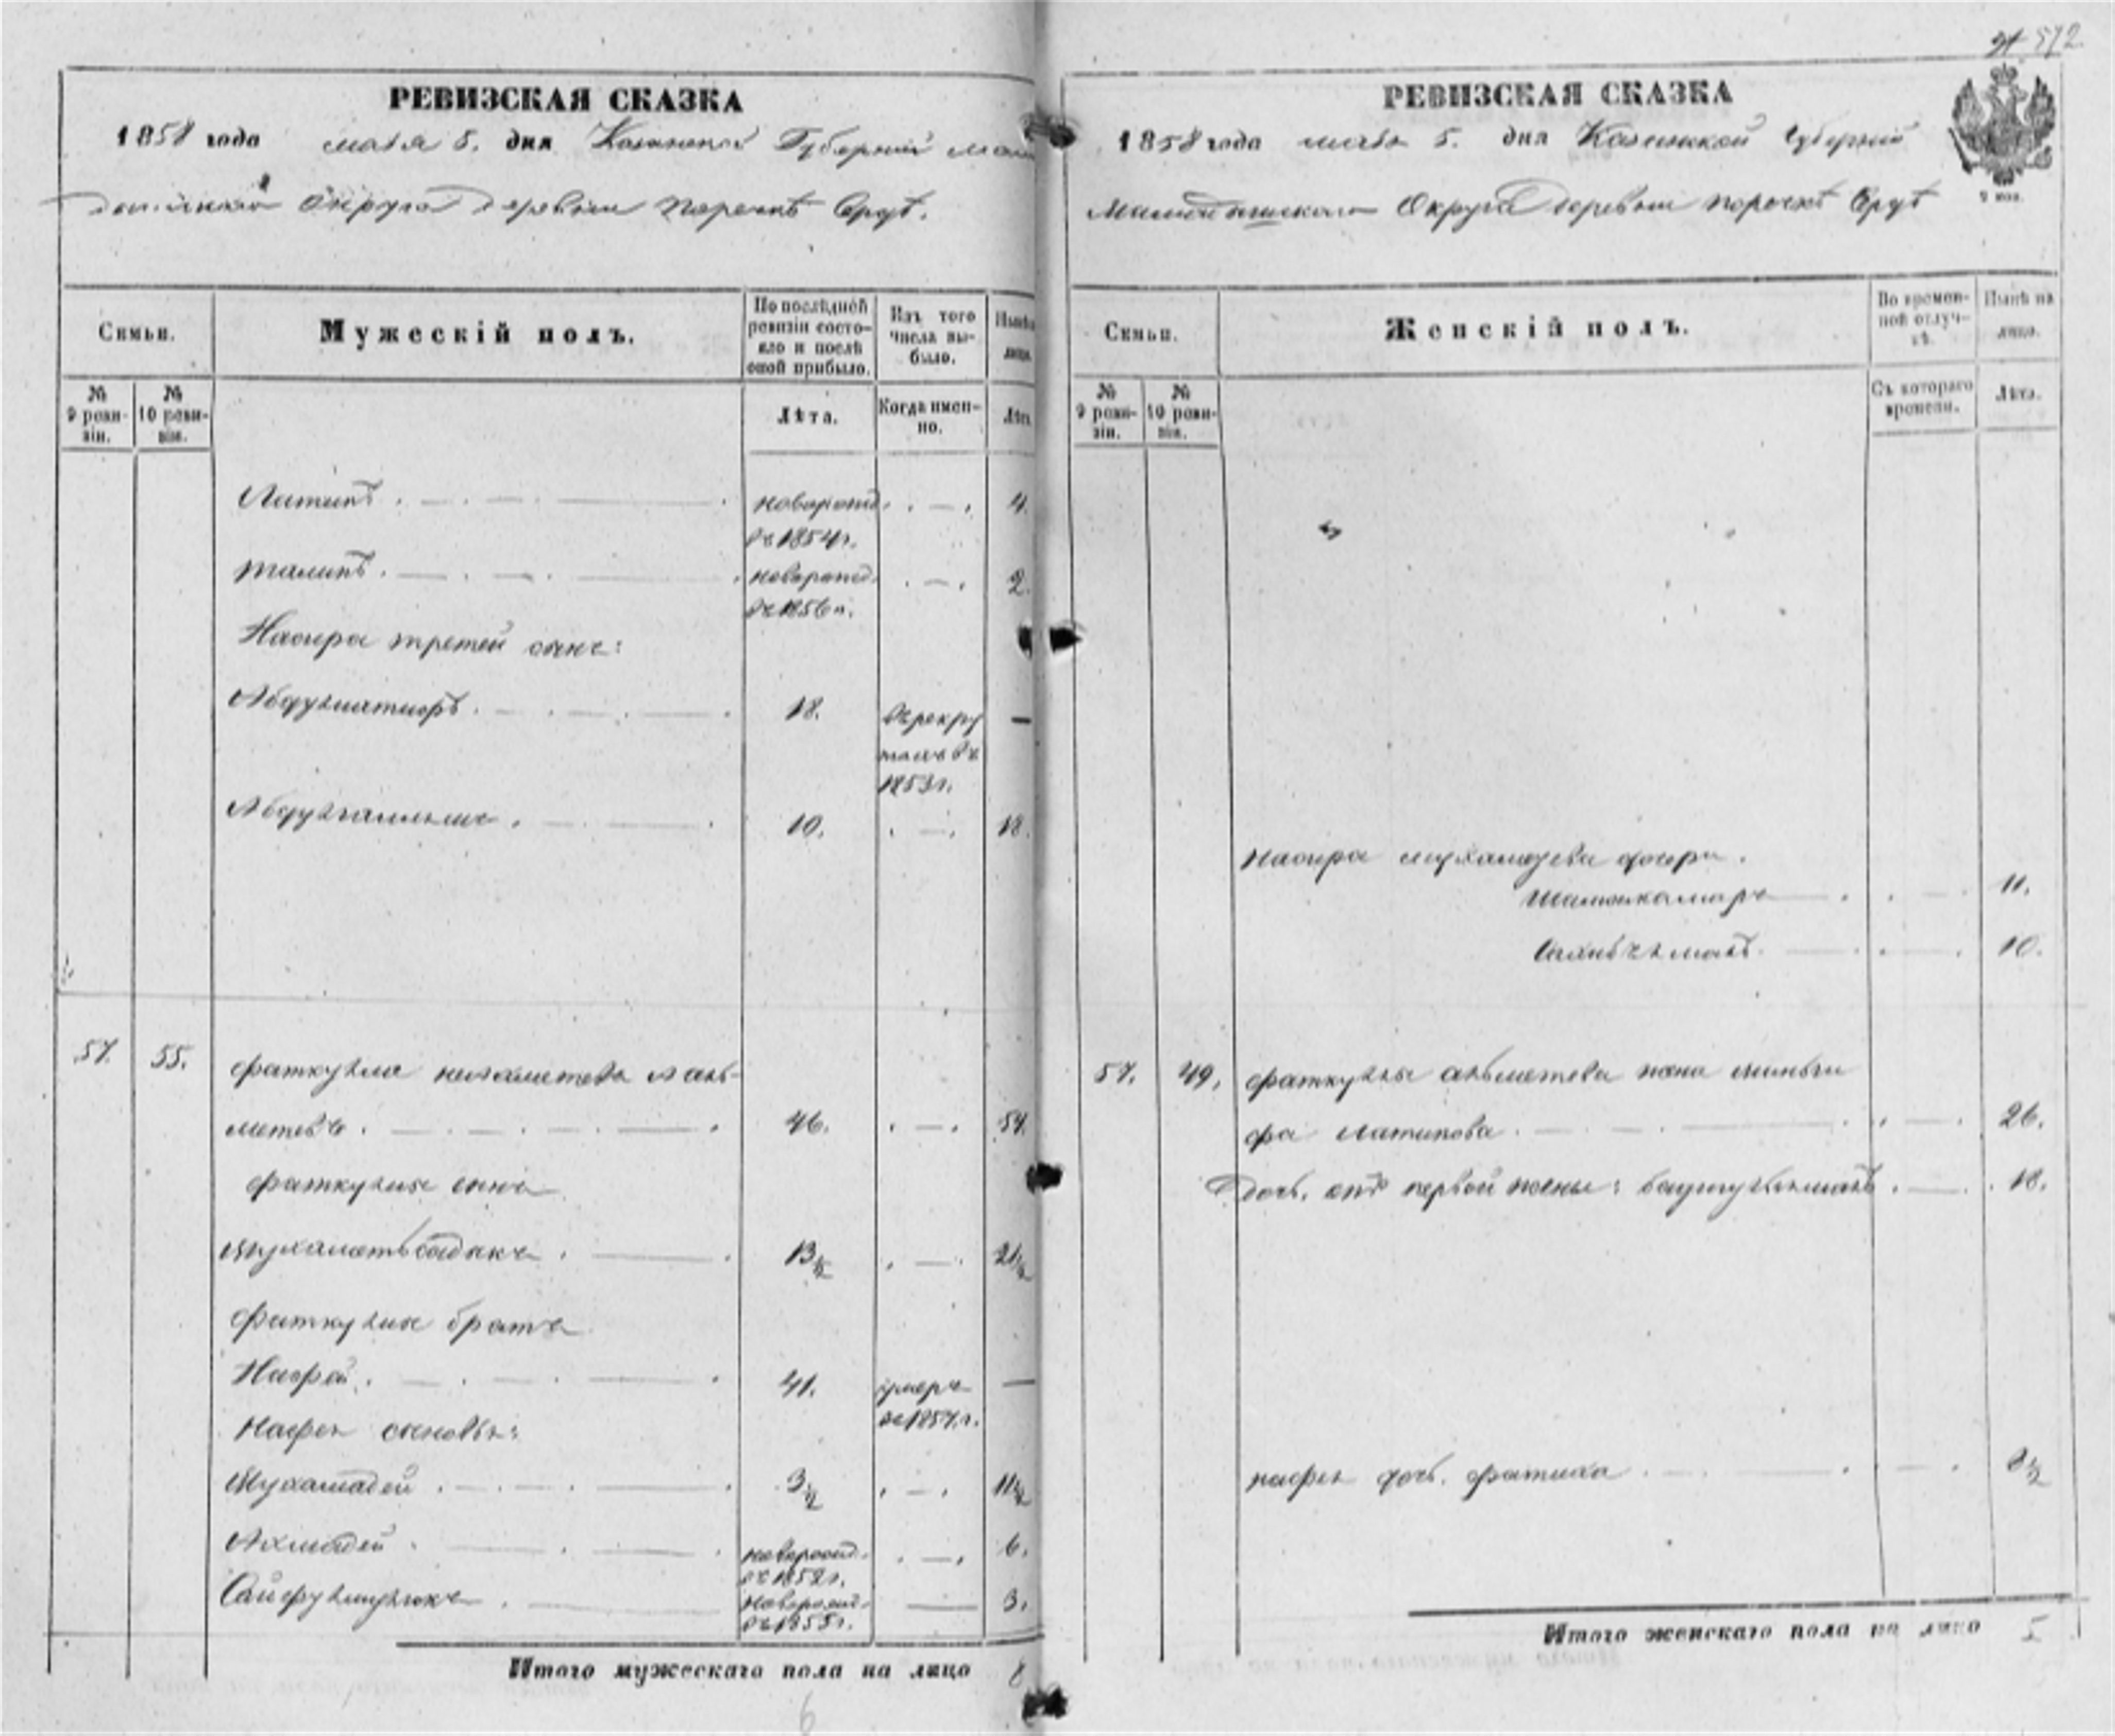 572
РЕВИЗСКАЯ СКАЗКА
1858 года мая 5. дня Казанской Губернии Мама
дышскаго Округа деревни Поречнъ Срутъ.
Семьи.
Мужескій полъ.
По послѣдней ревизіи состо-
яло и послѣ
оной прибыло.
Изъ того
числа вы-
было.
Нынѣ
лицо.
№
9 реви-
зіи.
№
10 реви-
зіи.
Лѣта.
Когда имен-
но.
Лѣта
Латипъ. 4.
новорожд.
въ 1854 г.
Талипъ. 2.
новорожд.
въ 1856 г.
Насыра третей сынъ:
18. въ рекру
тахъ въ
1853 г.
10. 18.
57. 55. Фаткулла
метевъ. 46. 54.
Фаткуллы сынъ
Мухаметьсадыкъ. 13½ 21½
Фаткуллы братъ
Нафей. 41. умеръ
въ 1857 г.
Нафея сыновья:
Мухамадей. 3½ 11½
Ахмадей. 6.
новорожд.
въ 1852 г.
Сайфульмулюкъ. 3.
новорожд.
въ 1855 г.
Итого мужескаго пола на лицо 8
6
РЕВИЗСКАЯ СКАЗКА
1858 года мая 5. дня Казанской Губерніи
Мамадышскаго Округа деревни Поречнъ Срутъ
2 коп.
Семьи.
Женскій полъ.
Во времен-
ной отлуч-
кѣ.
Нынѣ на
лицо.
№
9 реви-
зіи.
№
10 реви-
зіи.
Съ котораго
времени.
Лѣта.
Насыра Мухамезева дочери.
Шамсикамаръ 11.
10.
57. 49. Фаткуллы жена Миньги
фа Латыпова. 26.
Дочь. отъ первой жены: 18.
Нафея дочь. Фатиха. 8½
Итого женскаго пола на лицо 5